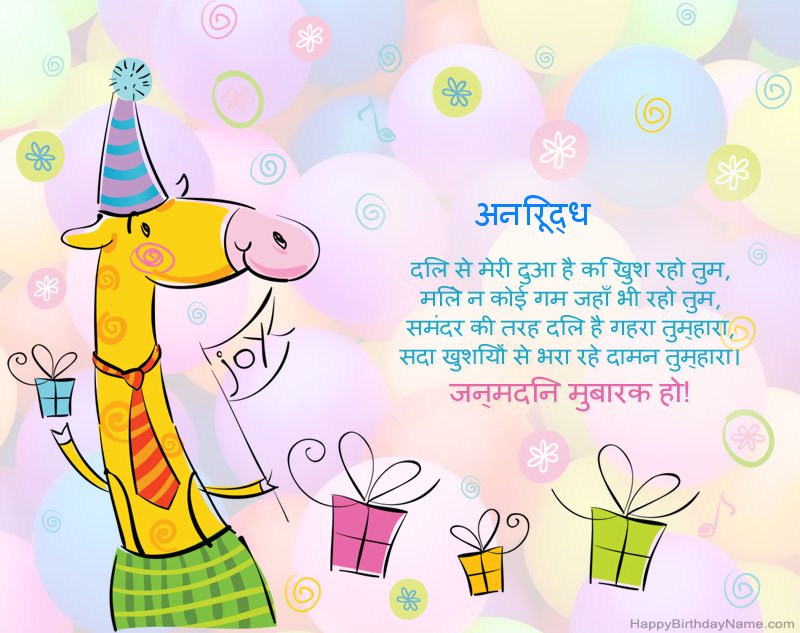 अनिरूद्ध
दिल से मेरी दुआ है कि खुश रहो तुम,
मिले न कोई गम जहाँ भी रहो तुम,
समंदर की तरह दिल है गहरा तुम्हारा,
सदा खुशियों से भरा रहे दामन तुम्हारा।
जन्मदिन मुबारक हो!
joy
HappyBirthdayName.com